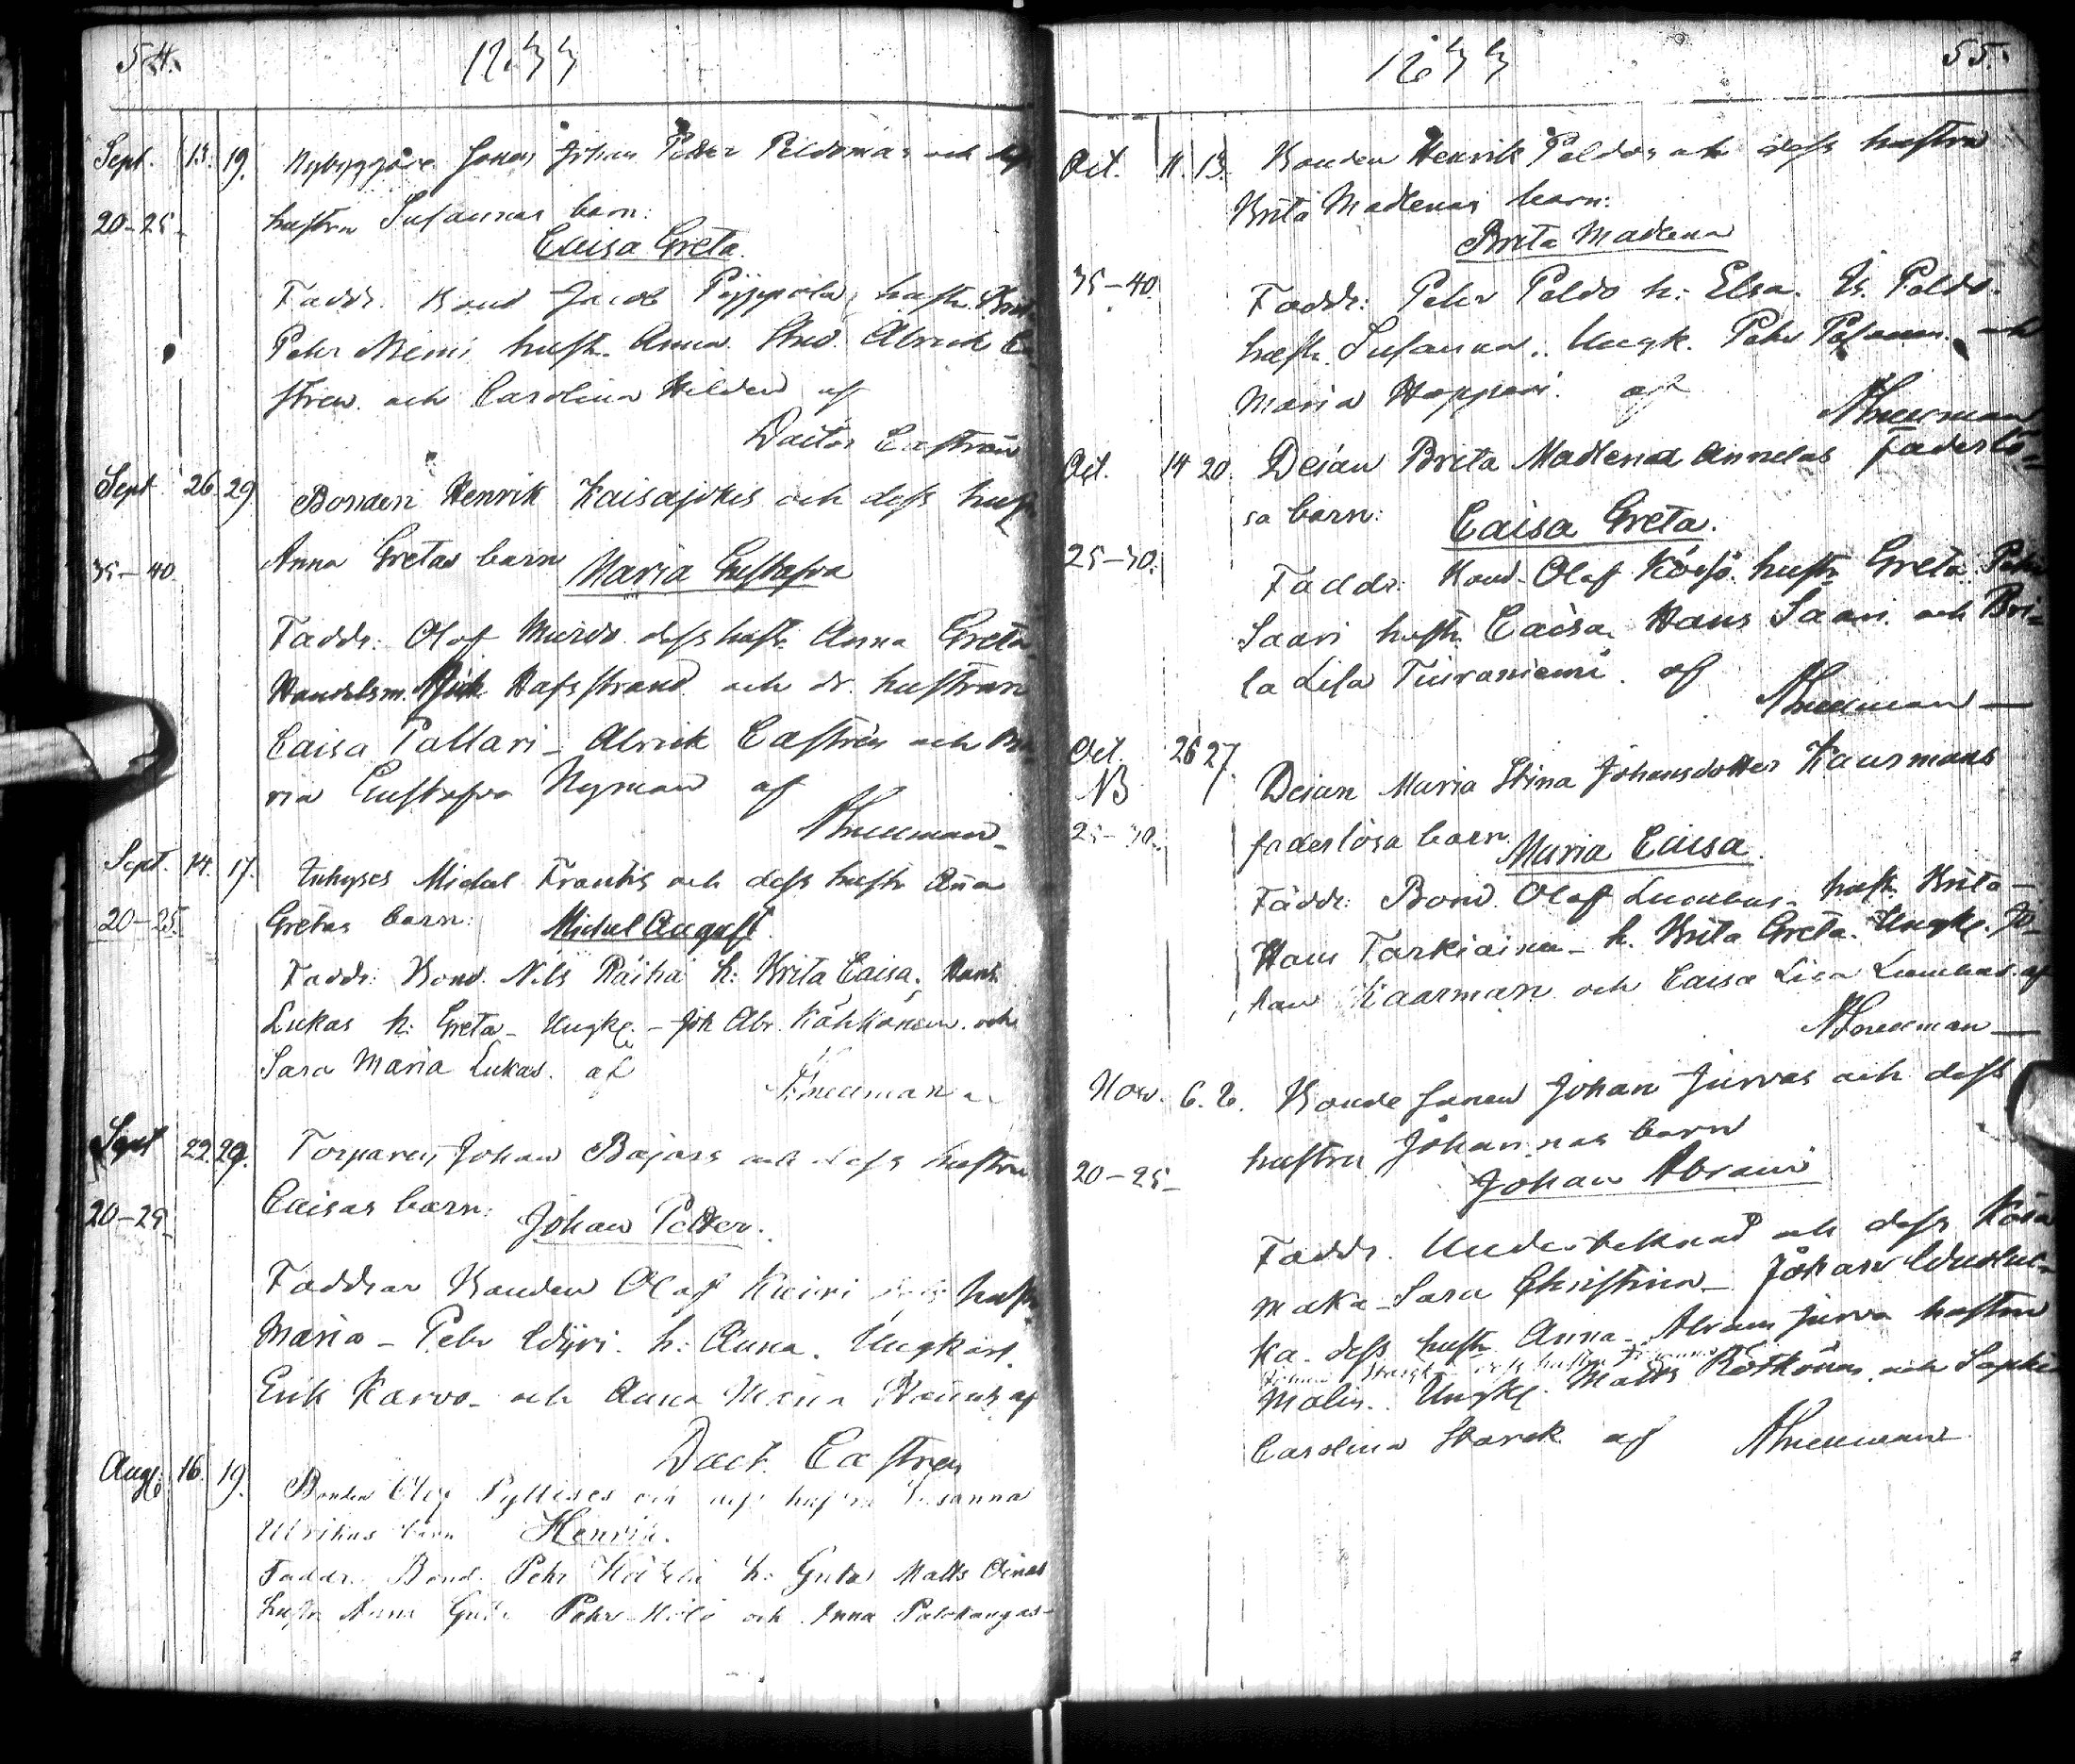 54.
1833
Sept. 13. 19. Nybyggare Sonen Johan Petter Peldomas och dess
20-25- hustru Susannas barn:
Caisa Greta.
Faddr. Bond Jacob Pÿppölä, hustr. Brita
Pehr Niemi hustr. Anna. Stud. Alrick Ca-
stren och Carolina Hildén af
Doctor Castrén
Sept. 26. 29. Bonden Henrik Kaisajokis och dess hustr
35-40 Anna Gretas barn Maria Gustafva
Faddr: Olof Muivo dess hustr Anna Greta
Handelsm. Mich. Hafsstrand och dr. hustrun
Caisa Pallari - Alrick Castrén och Ma-
ria Gustafva Nyman af
Snellman
Sept. 14. 17. Inhyses Michel Frantis och dess hustr Anna
20-25. Gretas barn: Michel August.
Faddr: Bond. Nils Räihä h: Brita Caisa.
Lukas h: Greta - Ungk. - Joh Abr. Kähkönen. och
Sara Maria Lukas. af
Snellman
Sept 22. 29. Torparen Johan Bajars och dess hustru
20-29 Caisas barn: Johan Petter.
Faddrar Bonden Olof Kieiri dess hustr
Maria - Pehr Wÿri. h: Anna. Ungkarl.
Erik Karvo - och Anna Maria af
Doct. Castrén
Aug. 16. 19. Bonden Olof Pyllises och dess hustru Susanna
Ulrikas barn Henrik.
Faddr. Bond. Pehr h: Greta Matts
hustr Anna Greta Pehr och Anna Palokangas-
1833
55.
Oct. 11. 13. Bonden Henrik Poldos och dess hustru
Brita Madlenas barn:
Brita Madlena
35-40. Faddr: Pehr Poldo h: Elsa. Is. Poldo.
hustr. Susanna. Ungk. Pehr och
Maria Happari. af
Snellman
Oct. 14 20. Deian Brita Madlena Annelas faderlö-
sa barn: Caisa Greta.
25-30. Faddr. Bond. Olof Körjö. hustr Greta. Pehr
Saari hustr. Caisa, Hans Saari och Bri-
ta Lisa Tuiraniemi. af
Snellman
Oct. 26 27. Deian Maria Stina Johansdotter Kaurmans
NB
25-30. faderlösa barn. Maria Caisa.
Faddr: Bond. Olof Lumbus - hustr. Brita -
Hans Tarkiainen - h. Brita Greta. Ungk. Jo-
han Kaarman och Caisa Lisa Lumbus. af
Snellman
Nov. 6. 6. Bonde Sonen Johan Jurvas och dess
hustru Johannas barn
20-25- Johan Abram
Faddr. Undertecknad och dess Kära
Maka - Sara Christina - Johan
ka. dess hustr Anna - Abram Jurva hustru
dess hustru
Malin. Ungk. Matts Rötkönen och Sophia
Carolina Storck af Snellman